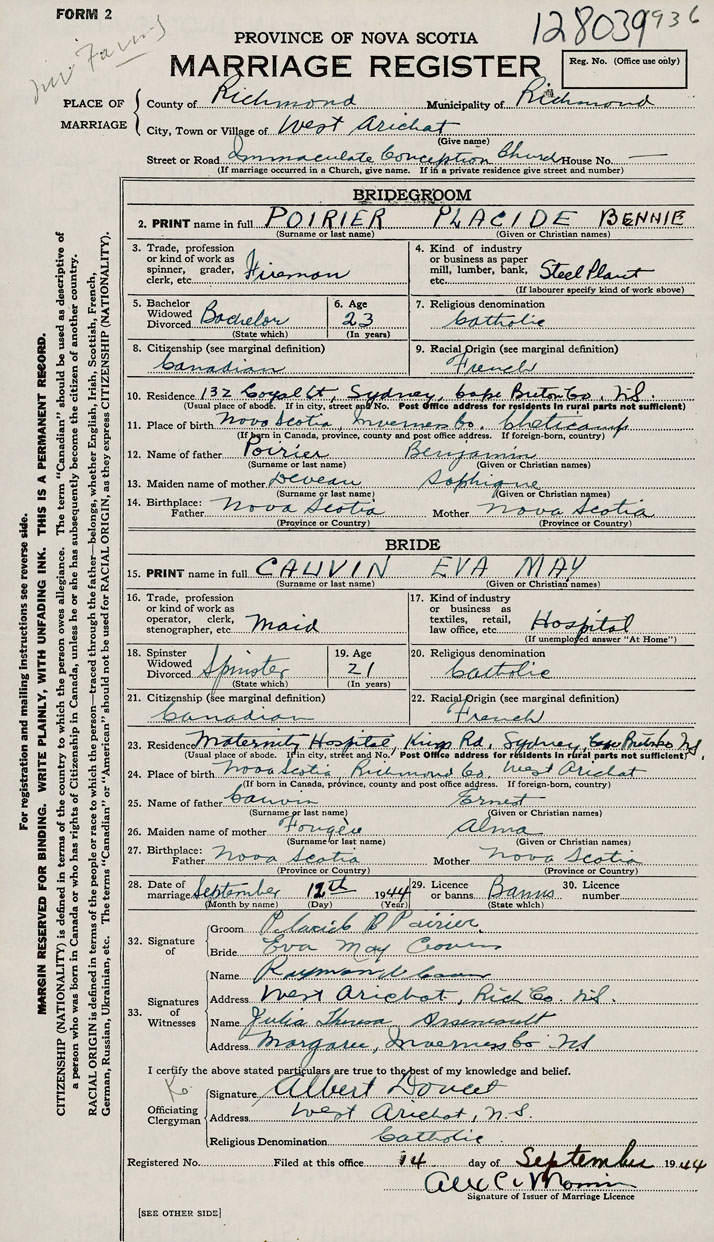 FORM 2
128039936
PROVINCE OF NOVA SCOTIA
MARRIAGE REGISTER
Reg. No. (Office use only)
PLACE OF MARRIAGE
County of Richmond Municipality of Richmond
City, Town or Village of West Arichat
(Give name)
Street or Road Immaculate Conception Church House No. —
(If marriage occurred in a Church, give name. If in a private residence give street and number)
BRIDEGROOM
2. PRINT name in full POIRIER PLACIDE BENNIE
(Surname or last name) (Given or Christian names)
3. Trade, profession or kind of work as spinner, grader, clerk, etc. Fireman
4. Kind of industry or business as paper mill, lumber, bank, etc. Steel Plant
(If labourer specify kind of work above)
5. Bachelor Widowed Divorced Bachelor (State which)
6. Age 23 (In years)
7. Religious denomination Catholic
8. Citizenship (see marginal definition) Canadian
9. Racial Origin (see marginal definition) French
10. Residence 132 St, Sydney, Cape Breton Co., N.S.
(Usual place of abode. If in city, street and No. Post Office address for residents in rural parts not sufficient)
11. Place of birth Nova Scotia, Inverness Co. Cheticamp
(If born in Canada, province, county and post office address. If foreign-born, country)
12. Name of father Poirier Benjamin
(Surname or last name) (Given or Christian names)
13. Maiden name of mother Deveau
(Surname or last name) (Given or Christian names)
14. Birthplace: Father Nova Scotia Mother Nova Scotia
(Province or Country) (Province or Country)
BRIDE
15. PRINT name in full CAUVIN EVA MAY
(Surname or last name) (Given or Christian names)
16. Trade, profession or kind of work as operator, clerk, stenographer, etc. Maid
17. Kind of industry or business as textiles, retail, law office, etc. Hospital
(If unemployed answer "At Home")
18. Spinster Widowed Divorced Spinster (State which)
19. Age 21 (In years)
20. Religious denomination Catholic
21. Citizenship (see marginal definition) Canadian
22. Racial Origin (see marginal definition) French
23. Residence Maternity Hospital, Kings Rd, Sydney, Cape Breton Co N.S.
(Usual place of abode. If in city, street and No. Post Office address for residents in rural parts not sufficient)
24. Place of birth Nova Scotia, Richmond Co. West Arichat
(If born in Canada, province, county and post office address. If foreign-born, country)
25. Name of father Cauvin Ernest
(Surname or last name) (Given or Christian names)
26. Maiden name of mother Fougère Alma
(Surname or last name) (Given or Christian names)
27. Birthplace: Father Nova Scotia Mother Nova Scotia
(Province or Country) (Province or Country)
28. Date of marriage September 12th 1944
(Month by name) (Day) (Year)
29. Licence or banns Banns (State which)
30. Licence number
32. Signature of
Groom Placide B Poirier
Bride Eva May
33. Signatures of Witnesses
Name Raymond
Address West Arichat, Rich Co. N.S.
Name Julia Theresa Arseneault
Address Margaree, Inverness Co N.S.
I certify the above stated particulars are true to the best of my knowledge and belief.
Officiating Clergyman
Signature Albert Doucet
Address West Arichat, N.S.
Religious Denomination Catholic
Registered No. Filed at this office 14 day of September 1944
Signature of Issuer of Marriage Licence
[SEE OTHER SIDE]
For registration and mailing instructions see reverse side.
MARGIN RESERVED FOR BINDING. WRITE PLAINLY, WITH UNFADING INK. THIS IS A PERMANENT RECORD.
CITIZENSHIP (NATIONALITY) is defined in terms of the country to which the person owes allegiance. The term "Canadian" should be used as descriptive of
a person who was born in Canada or who has rights of Citizenship in Canada, unless he or she has subsequently become the citizen of another country.
RACIAL ORIGIN is defined in terms of the people or race to which the person—traced through the father—belongs, whether English, Irish, Scottish, French,
German, Russian, Ukrainian, etc. The terms "Canadian" or "American" should not be used for RACIAL ORIGIN, as they express CITIZENSHIP (NATIONALITY).